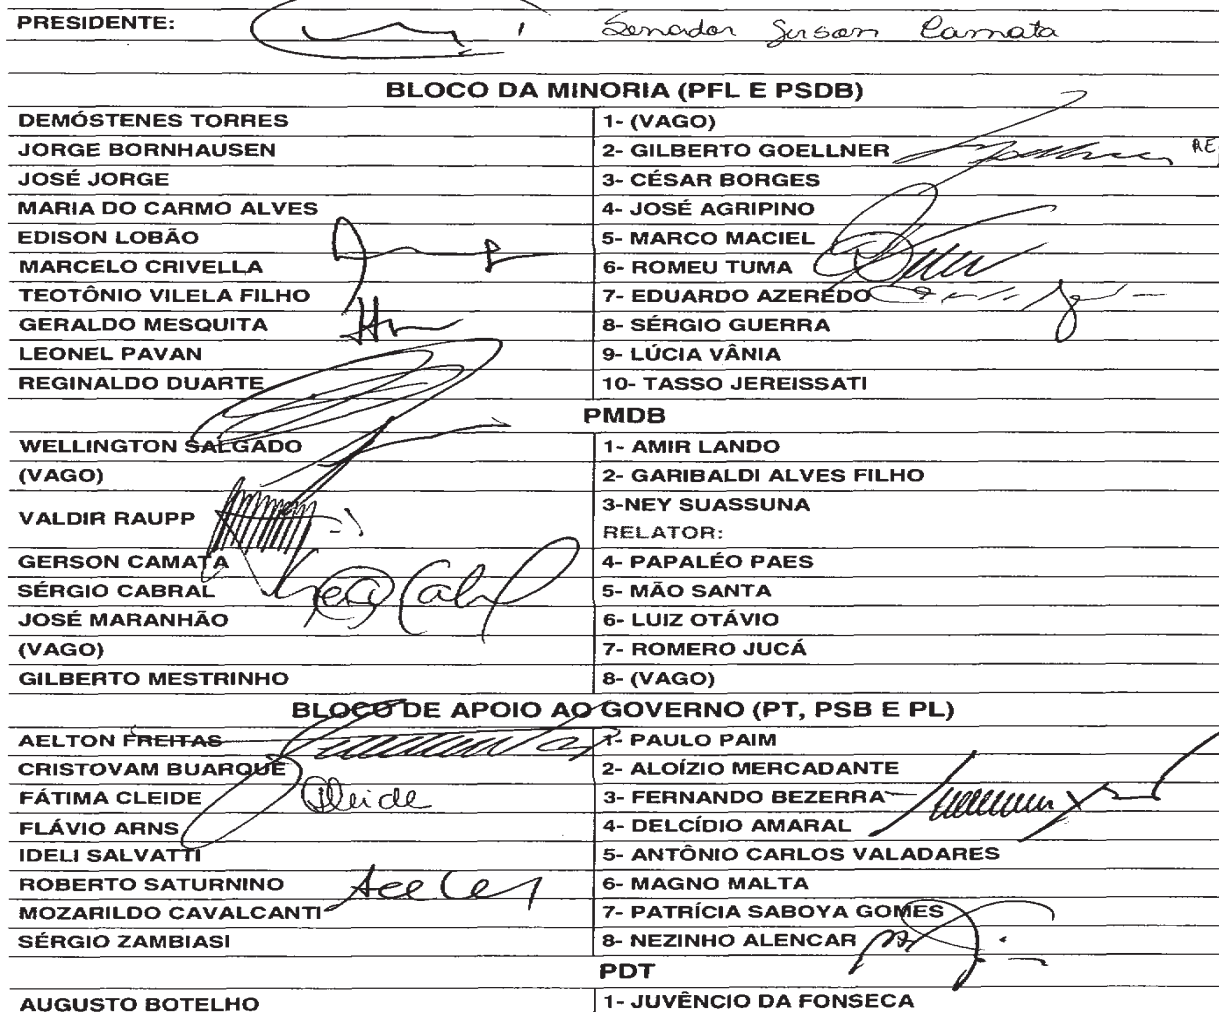 PRESIDENTE: Senador Gerson Camata
BLOCO DA MINORIA (PFL E PSDB)
DEMÓSTENES TORRES 1- (VAGO)
JORGE BORNHAUSEN 2- GILBERTO GOELLNER
JOSÉ JORGE 3- CÉSAR BORGES
MARIA DO CARMO ALVES 4- JOSÉ AGRIPINO
EDISON LOBÃO 5- MARCO MACIEL
MARCELO CRIVELLA 6- ROMEU TUMA
TEOTÔNIO VILELA FILHO 7- EDUARDO AZEREDO
GERALDO MESQUITA 8- SÉRGIO GUERRA
LEONEL PAVAN 9- LÚCIA VÂNIA
REGINALDO DUARTE 10- TASSO JEREISSATI
PMDB
WELLINGTON SALGADO 1- AMIR LANDO
(VAGO) 2- GARIBALDI ALVES FILHO
VALDIR RAUPP 3-NEY SUASSUNA
RELATOR:
GERSON CAMATA 4- PAPALÉO PAES
SÉRGIO CABRAL 5- MÃO SANTA
JOSÉ MARANHÃO 6- LUIZ OTÁVIO
(VAGO) 7- ROMERO JUCÁ
GILBERTO MESTRINHO 8- (VAGO)
BLOCO DE APOIO AO GOVERNO (PT, PSB E PL)
AELTON FREITAS 1- PAULO PAIM
CRISTOVAM BUARQUE 2- ALOÍZIO MERCADANTE
FÁTIMA CLEIDE Cleide 3- FERNANDO BEZERRA
FLÁVIO ARNS 4- DELCÍDIO AMARAL
IDELI SALVATTI 5- ANTÔNIO CARLOS VALADARES
ROBERTO SATURNINO 6- MAGNO MALTA
MOZARILDO CAVALCANTI 7- PATRÍCIA SABOYA GOMES
SÉRGIO ZAMBIASI 8- NEZINHO ALENCAR
PDT
AUGUSTO BOTELHO 1- JUVÊNCIO DA FONSECA